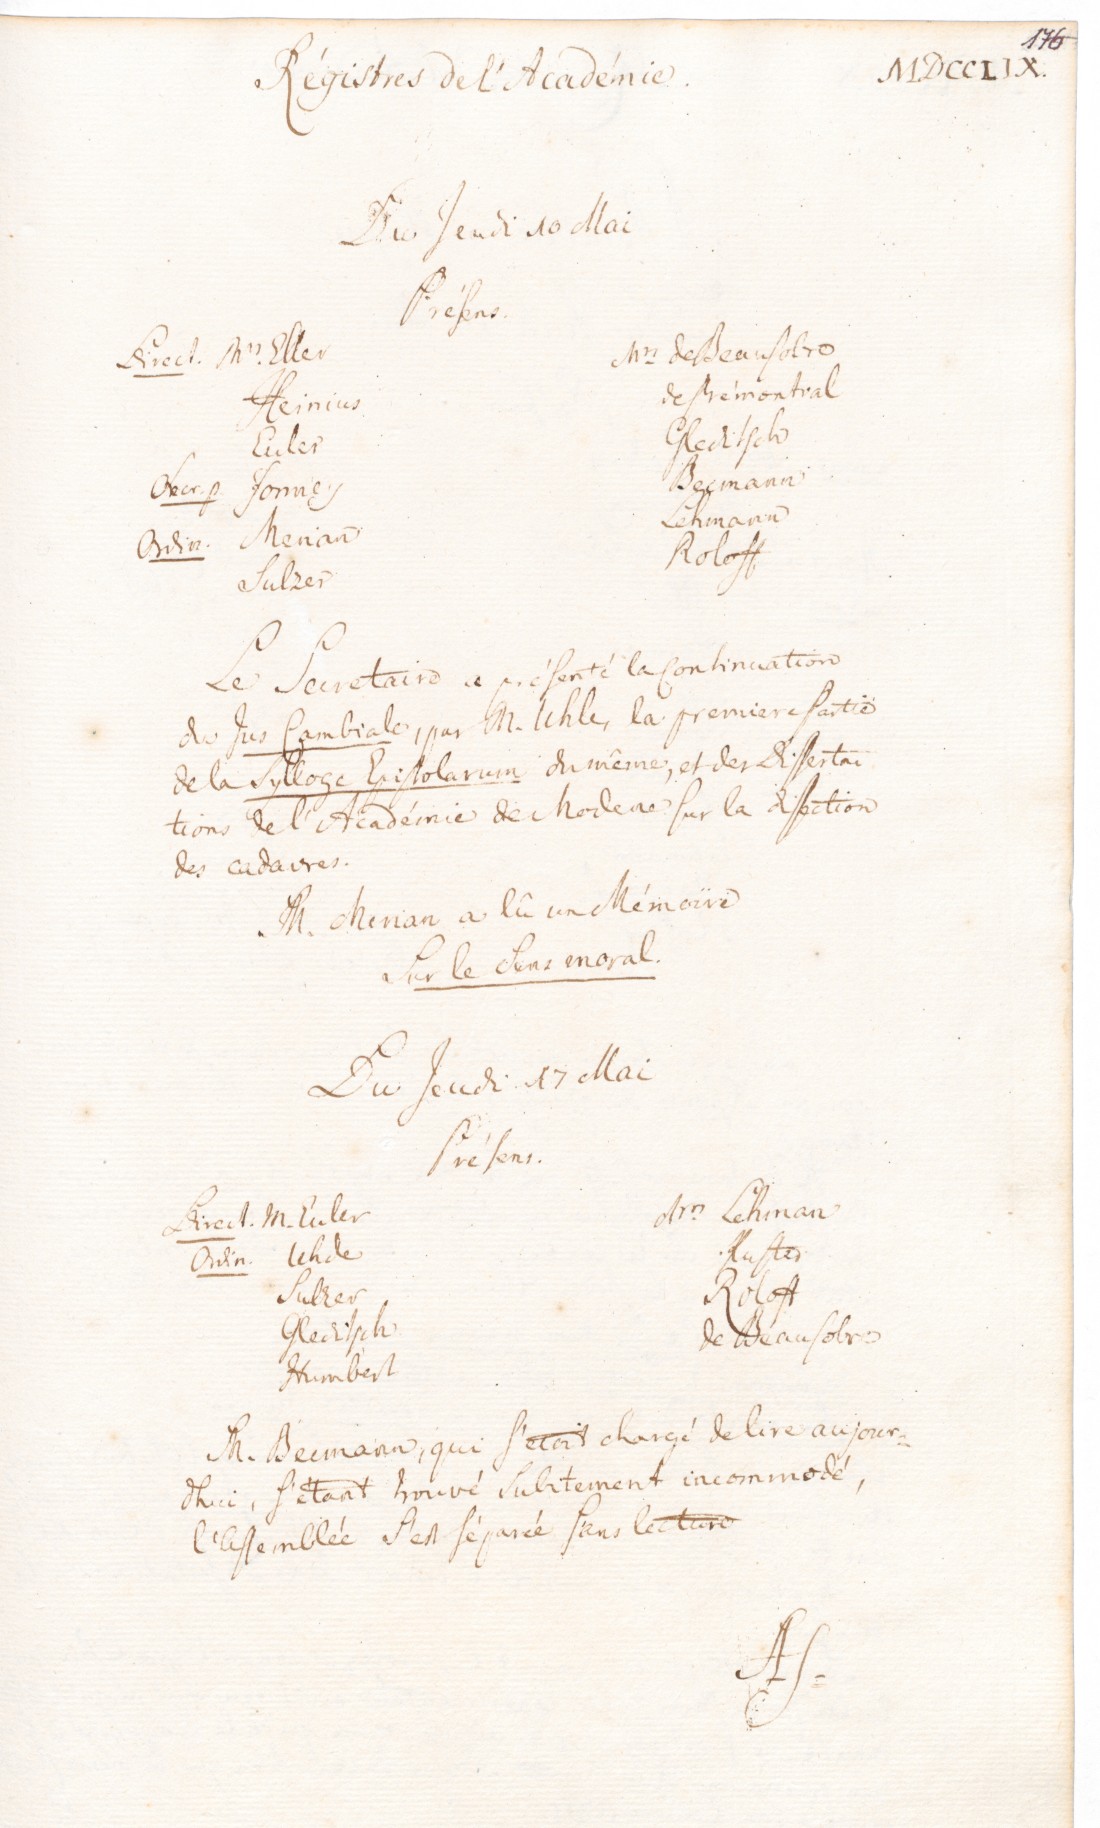 176
Régistres de l'Académie.
MDCCLIX.
Du Jeudi 10 Mai
Présens.
Direct. Mrs. Eller
Heinius
Euler
Secr. p. Formey
Ordin. Merian
Sulzer
Mrs de Beausobre
de Prémontval
Gleditsch
Becmann
Lehmann
Roloff
Le Secretaire a présenté la Continuation
du Jus Cambiale, par M. Uhle, la premiere Partie
de la Sylloge Epistolarum du même, et des Disserta-
tions de l'Académie de Modene sur la dissection
des cadavres.
M. Merian a lû un Mémoire
Sur le Sens moral.
Du Jeudi 17 Mai
Présens.
Direct. M. Euler
Ordin. Uhde
Sulzer
Gleditsch
Humbert
Mrs Lehman
Kuster
Roloff
de Beausobre
M. Becmann, qui s'etoit chargé de lire aujour=
dhui, s'étant trouvé subitement incommodé,
l'Assemblée s'est séparée sans lecture